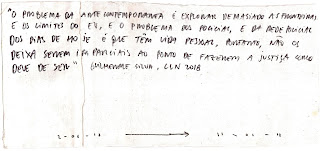 "O PROBLEMA DA ARTE CONTEMPORANEA É EXPLORAR DEMASIADO AS FRONTEIRAS
E OS LIMITES DO EU, E O PROBLEMA DOS POLICIAS, E DA REDE POLICIAL
DOS DIAS DE HOJE É QUE TÊM VIDA PESSOAL, PORTANTO, NÃO OS
DEIXA SEREM IMPARCIAIS AO PONTO DE FAZEREM A JUSTIÇA COMO
DEVE DE SER" GUILHERME SILVA, 2018